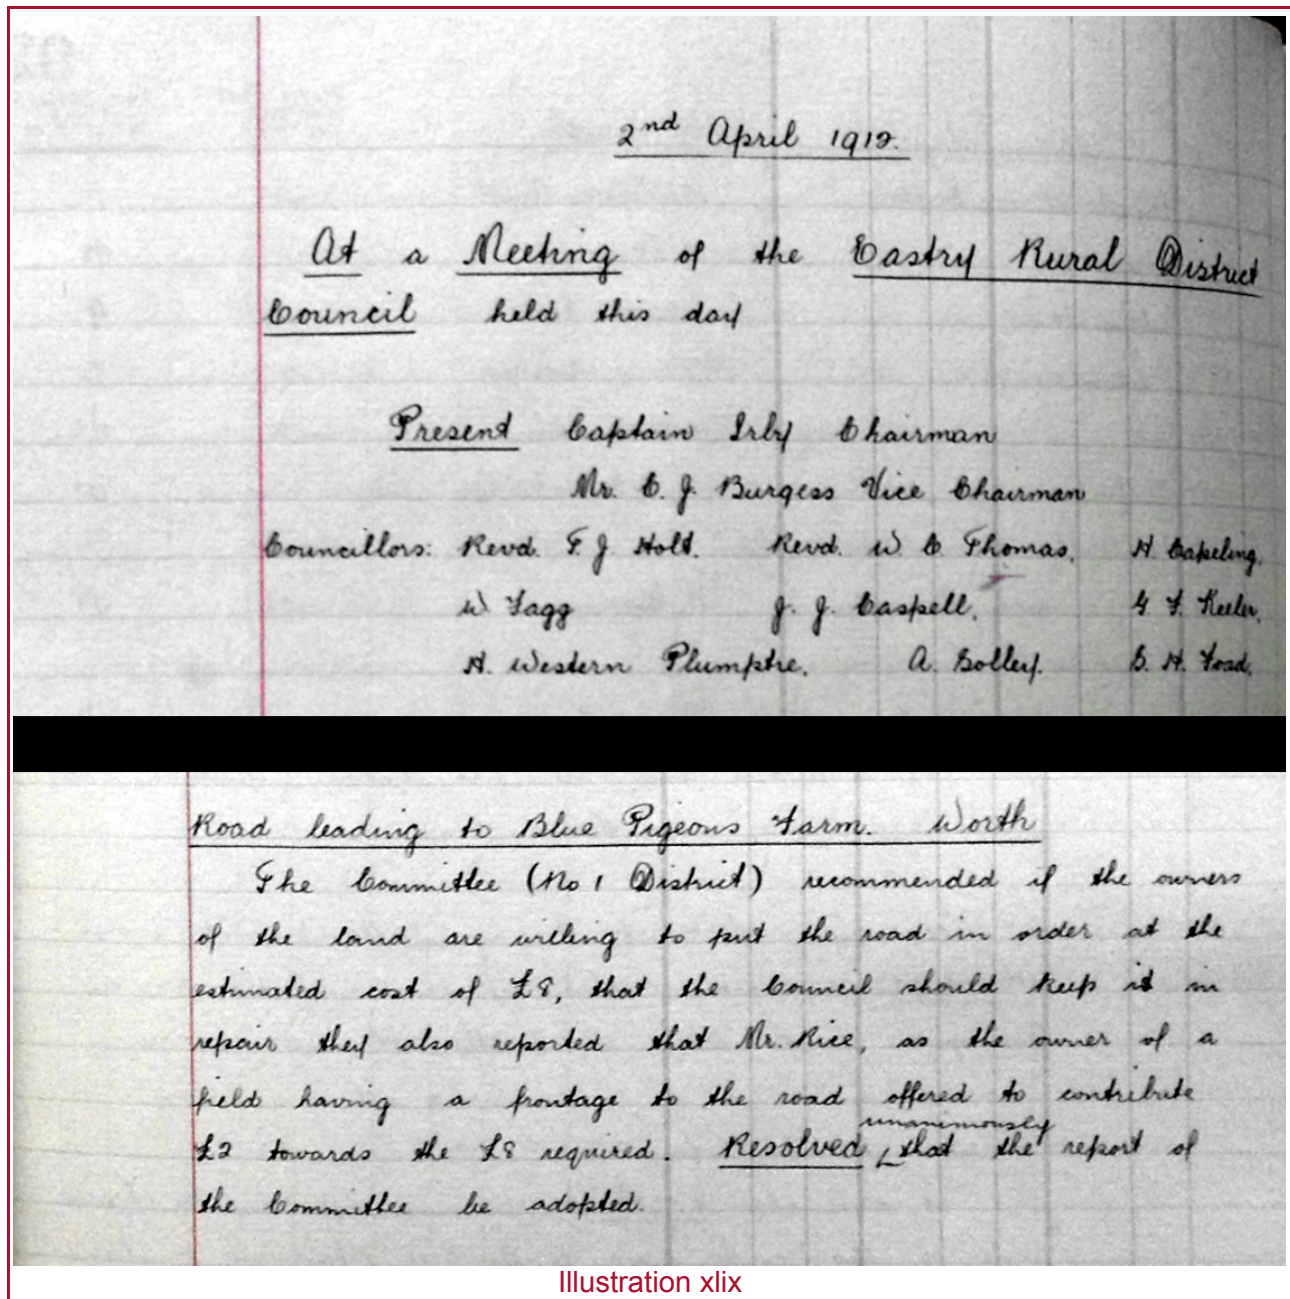 2nd April 1912.
At a Meeting of the Eastry Rural District
Council held this day
Present Captain Irby Chairman
Mr. C. J. Burgess Vice Chairman
Councillors: Revd. F. J Holt. Revd. W. C. Thomas. H. Capeling.
W Fagg J. J. Caspell. G F. Keeler.
H. Western Plumptre. A. Solley. B. H. Foad.
Road leading to Blue Pigeons Farm. Worth
The Committee (No 1 District) recommended if the owners
of the land are willing to put the road in order at the
estimated cost of £8, that the Council should keep it in
repair they also reported that Mr. Rice, as the owner of a
field having a frontage to the road offered to contribute
unanimously
£2 towards the £8 required. Resolved that the report of
the Committee be adopted.
Illustration xlix